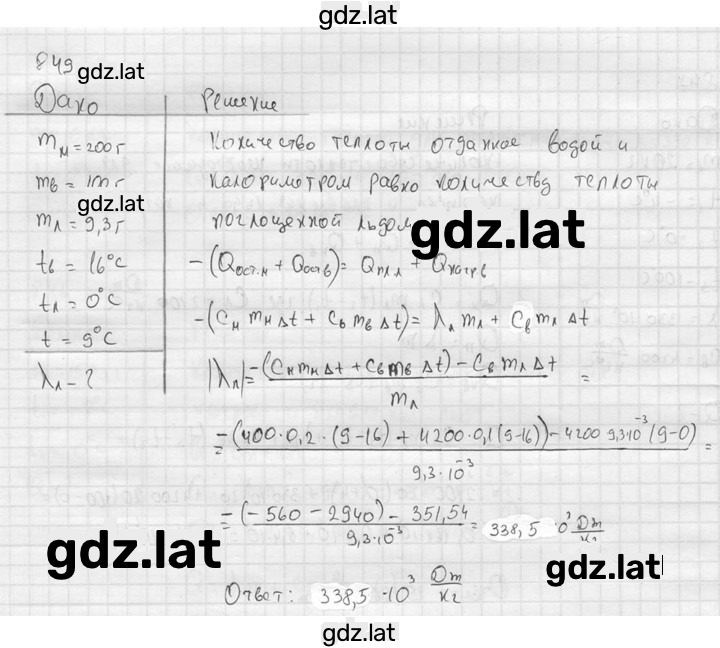 gdz.lat
849
gdz.lat
Дано
Решение
mм = 200 г
mв = 100 г
gdz.lat
mл = 9,3 г
tв = 16°C
tл = 0°C
t = 9°C
λл - ?
Количество теплоты отданное водой и
калориметром равно количеству теплоты
поглощенной льдом
gdz.lat
-(Qост.м + Qост.в) = Qпл.л + Qнагр.в
-(Cм mм Δt + Cв mв Δt) = λл mл + Cв mл Δt
|λл| = -(Cм mм Δt + Cв mв Δt) - Cв mл Δt / mл =
= -(400·0,2·(9-16) + 4200·0,1(9-16)) - 4200 9,3·10⁻³(9-0) / 9,3·10⁻³ =
= -(-560 - 2940) - 351,54 / 9,3·10⁻³ = 338,5 ·10³ Дж/кг
gdz.lat
gdz.lat
Ответ: 338,5 ·10³ Дж/кг
gdz.lat